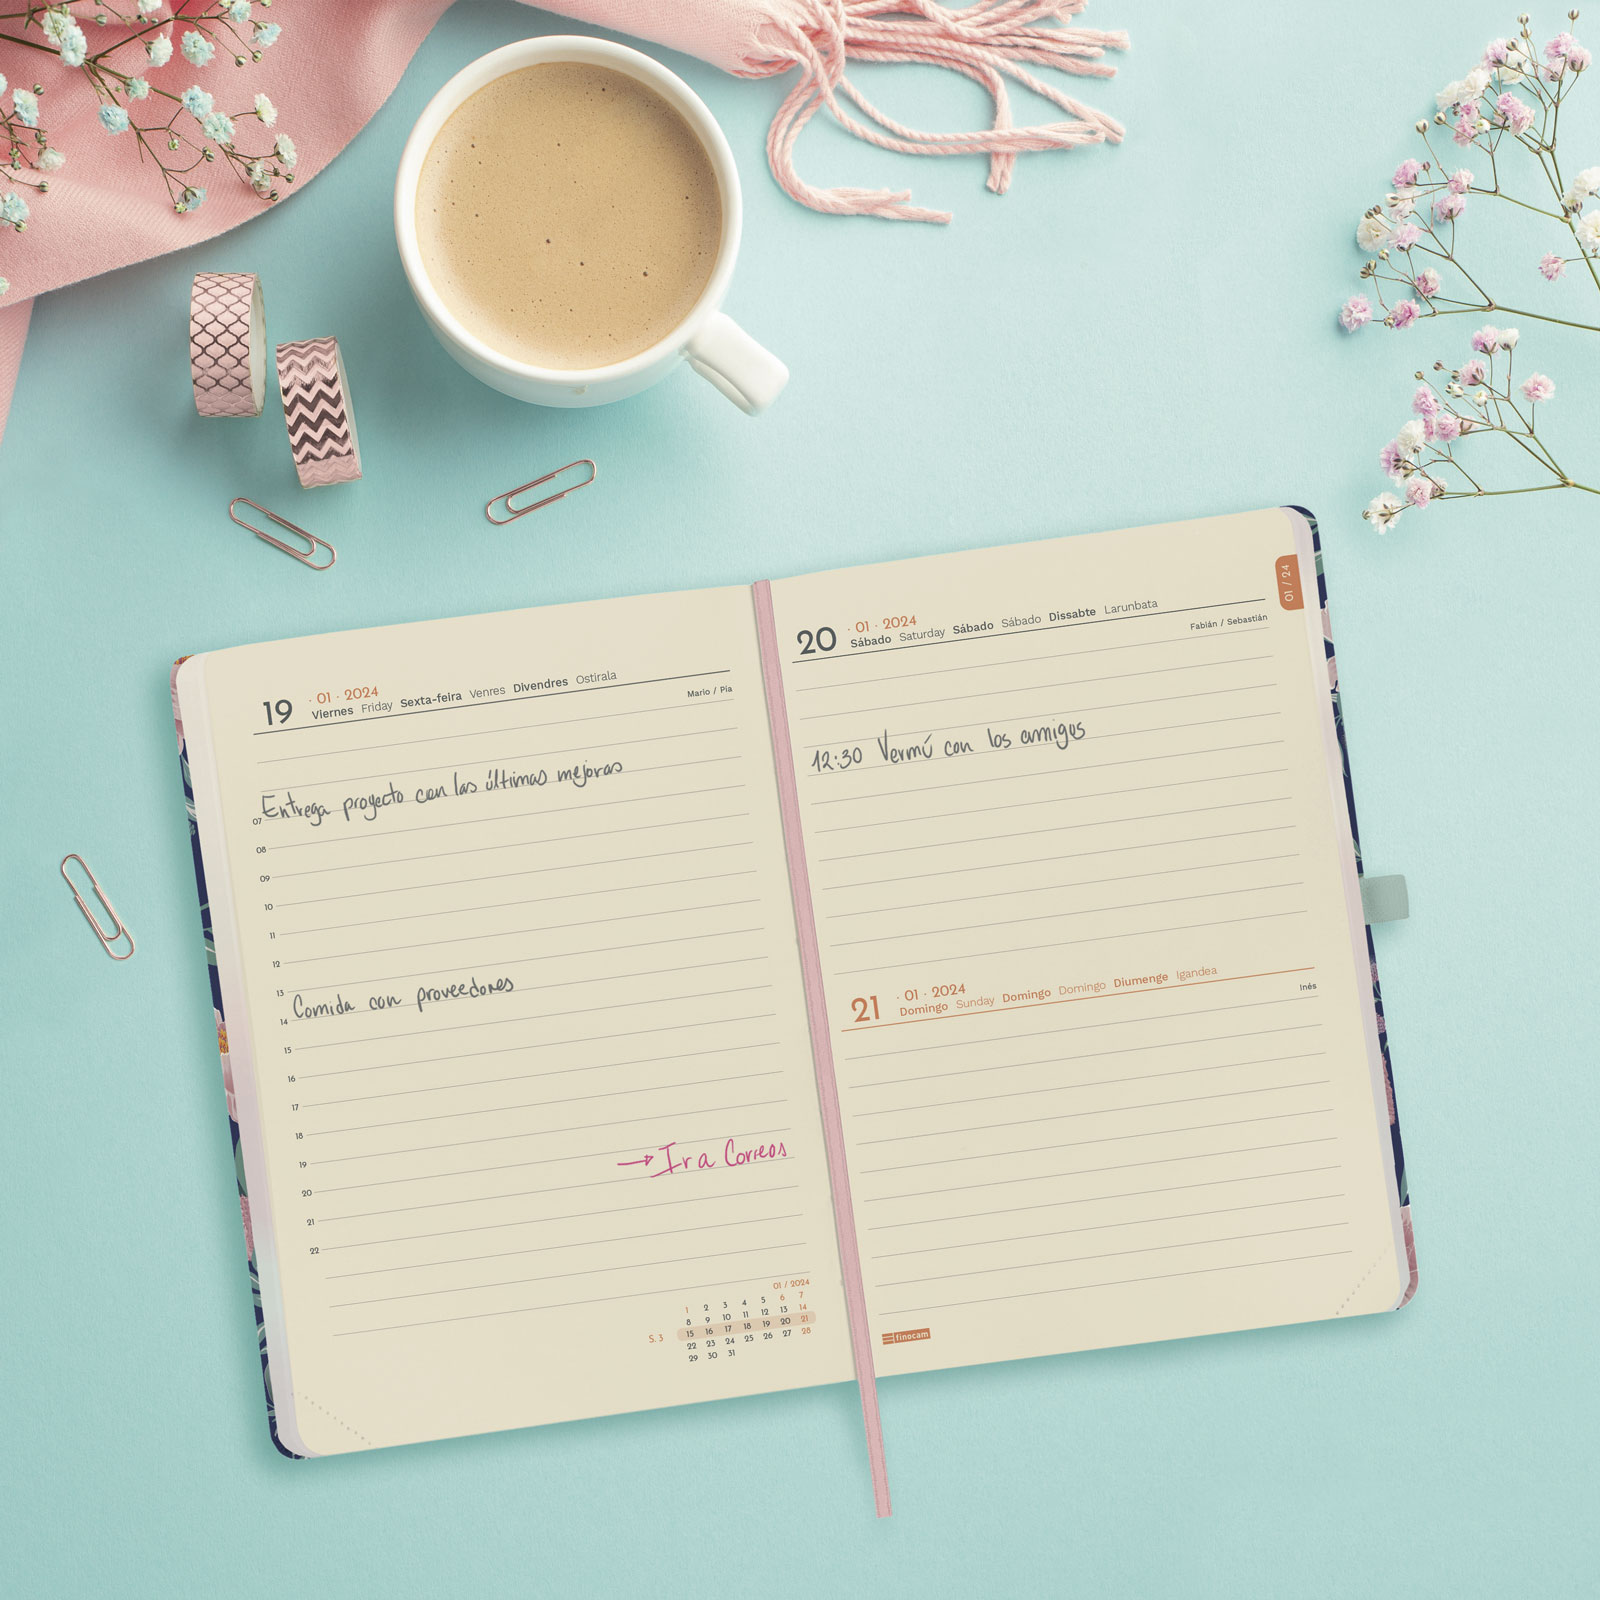 19 · 01 · 2024
Viernes Friday Sexta-feira Venres Divendres Ostirala
Mario / Pía
Entrega proyecto con las últimas mejoras
07
08
09
10
11
12
13
Comida con proveedores
14
15
16
17
18
19
→ Ir a Correos
20
21
22
01 / 2024
1 2 3 4 5 6 7
8 9 10 11 12 13 14
S. 3 15 16 17 18 19 20 21
22 23 24 25 26 27 28
29 30 31
01 / 24
20 · 01 · 2024
Sábado Saturday Sábado Sábado Dissabte Larunbata
Fabián / Sebastián
12:30 Vermú con los amigos
21 · 01 · 2024
Domingo Sunday Domingo Domingo Diumenge Igandea
Inés
finocam